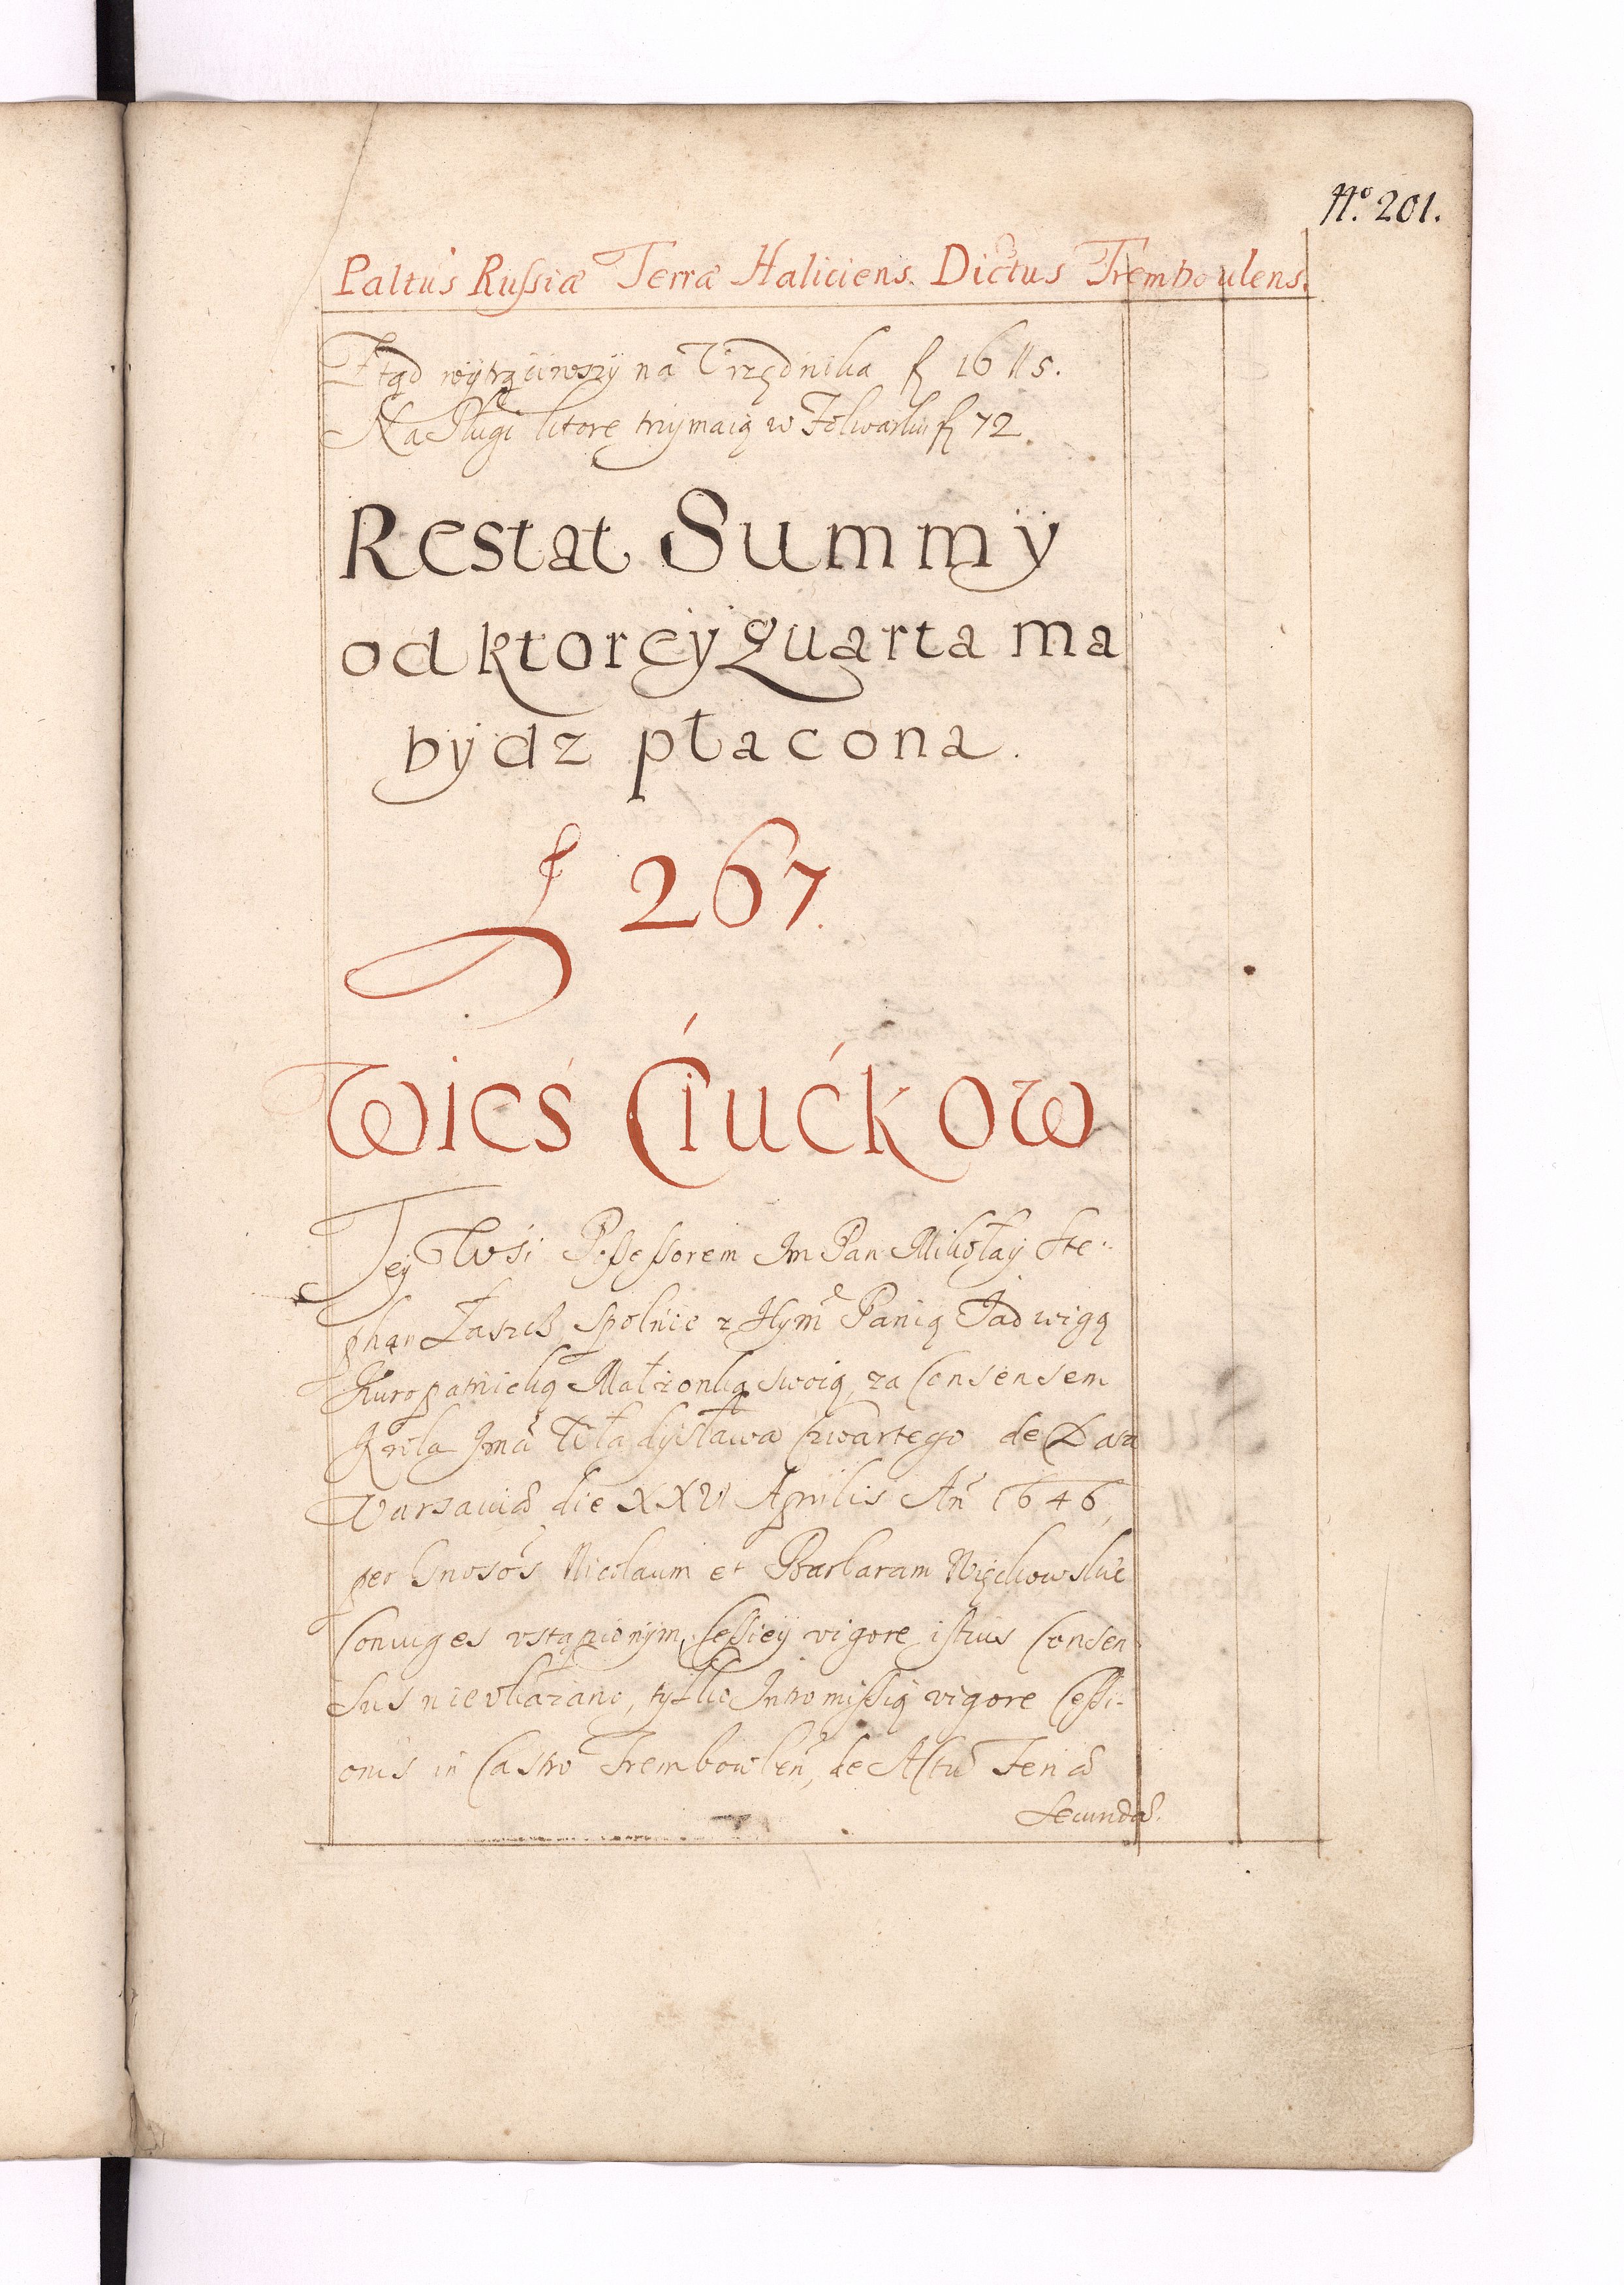 No. 201.
Paltus Russiæ Terræ Haliciens. Dictus Tremboulens.
Ztąd wÿtrąciwszÿ na Vrzędnika f 16 11 5.
Na Pługi ktore trzÿmaią w Folwarku f 72.
Restat Summÿ
od ktoreÿ quarta ma
bÿdz płacona.
f 267.
Wieś Ciućkow
Teÿ Wsi Possessorem Jm Pan Mikołaÿ Ste-
phan Łaszcz spolnie z Jeÿm Panią Jadwigą
Kuropatnicką Małżonką swoią, za Consensem
Krola Jmci Władÿsława Czwartego de Data
Varsaviæ die XXVI Aprilis An 1646,
per Gnosos Nicolaum et Barbaram Więckowskie
Coniuges vstąpionÿm, Cessieÿ vigore istius Consen-
sus nie vkazano, tÿlko Intromissią vigore Cessi-
onis in Castro Trembowlen, de Actu Feria
Secunda.